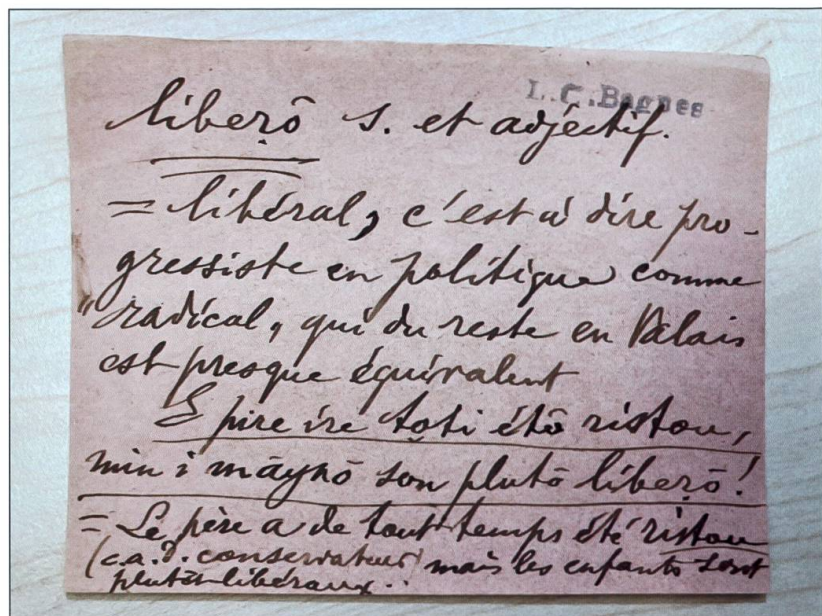 L. C. Bagnes
liberō s. et adjectif.
= libéral, c'est à dire pro-
gressiste en politique comme
"radical„ qui du reste en Valais
est presque équivalent
E pire ire toti étō ristou,
min i māynō son plutō liberō!
= Le père a de tout temps été ristou
(c.a.d. conservateur) mais les enfants sont
plutôt libéraux.